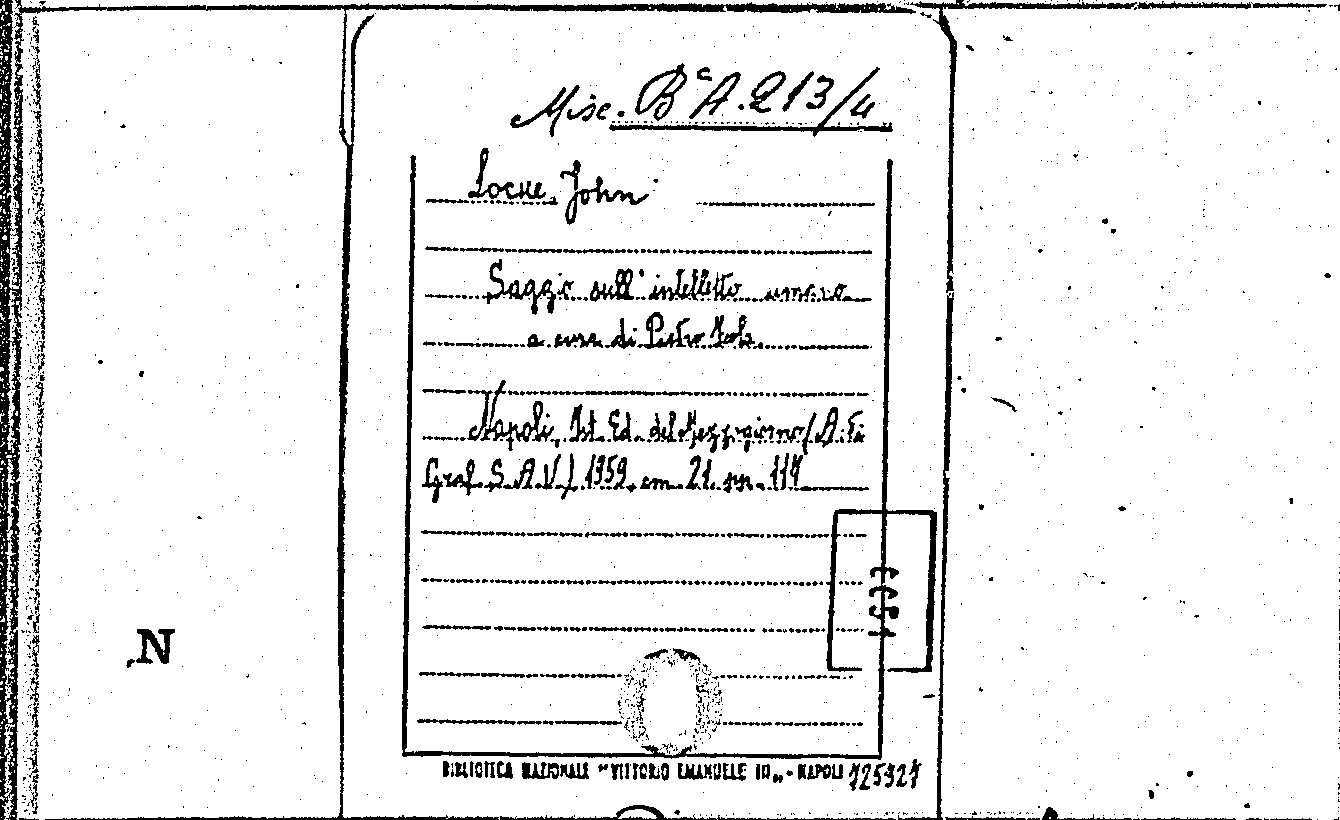 Misc. BᶜA. 213/4
Locke, John
Saggio sull'intelletto umano
a cura di Pietro
Napoli, Ist. Ed. del Mezzogiorno (A. Ti
Graf. S.A.V.) 1959. cm. 21. pp. 117
N
BIBLIOTECA NAZIONALE "VITTORIO EMANUELE III„ - NAPOLI 725327